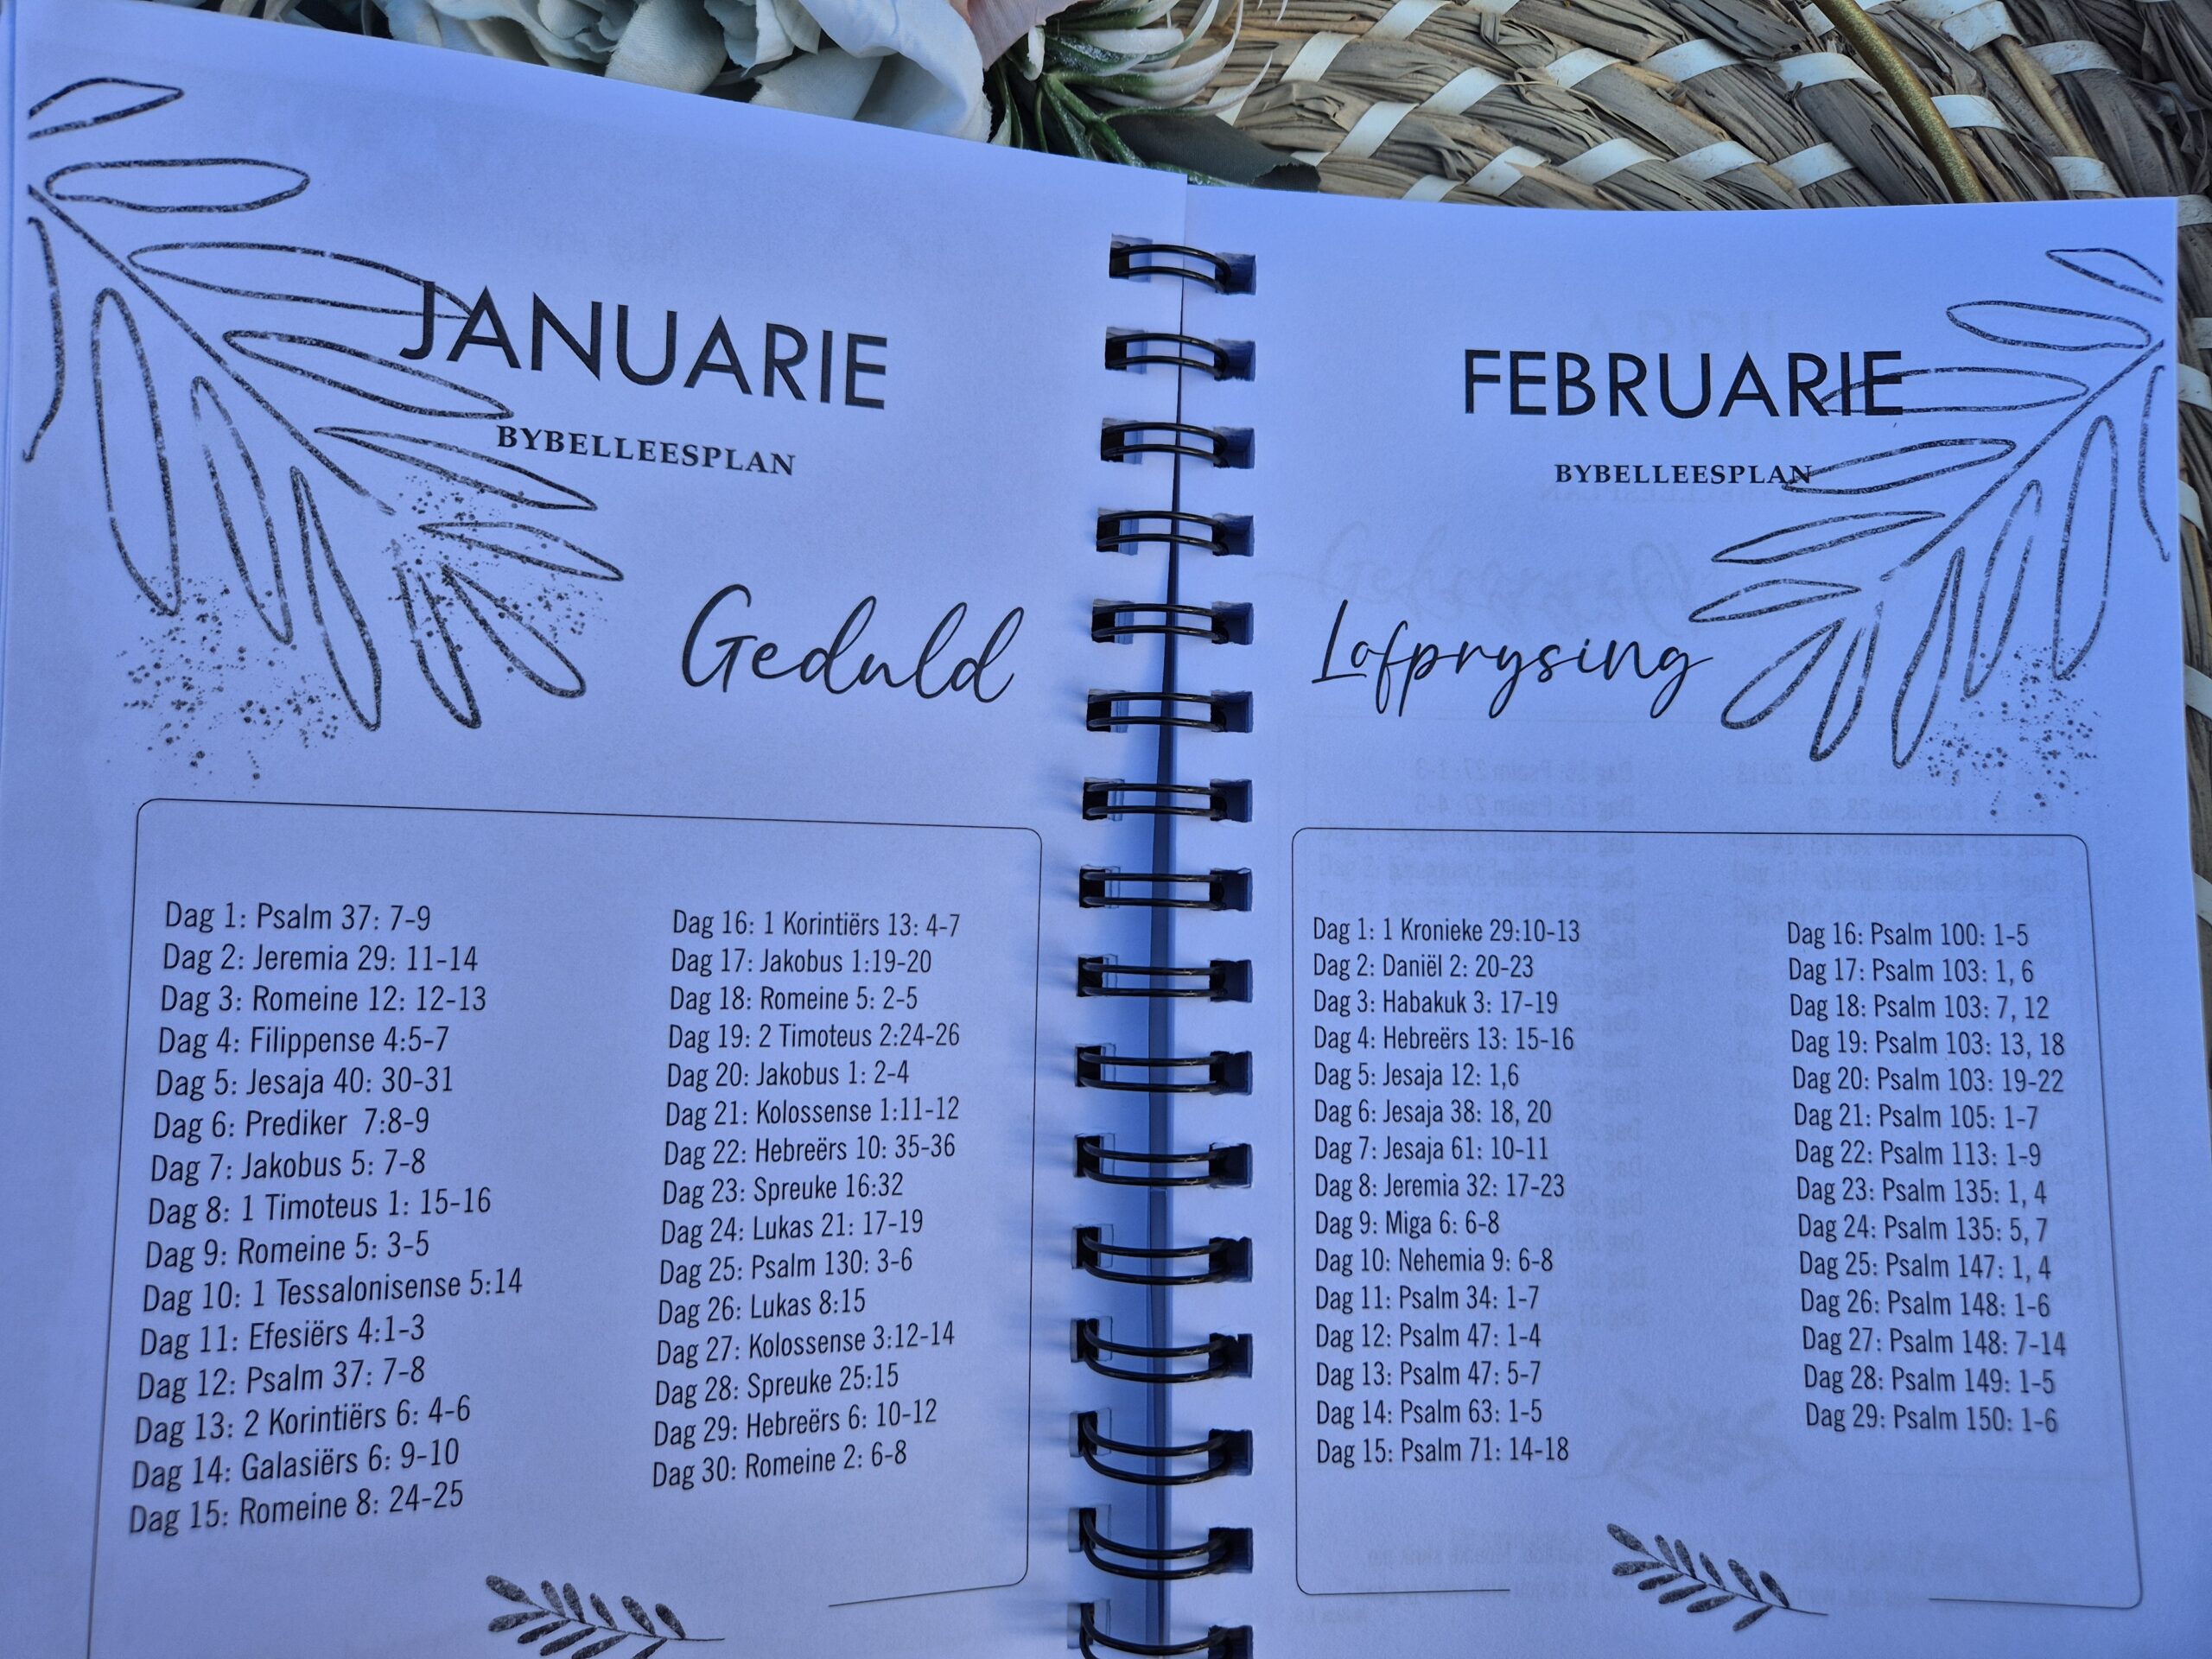 JANUARIE
BYBELLEESPLAN
Geduld
Dag 1: Psalm 37: 7-9
Dag 2: Jeremia 29: 11-14
Dag 3: Romeine 12: 12-13
Dag 4: Filippense 4:5-7
Dag 5: Jesaja 40: 30-31
Dag 6: Prediker 7:8-9
Dag 7: Jakobus 5: 7-8
Dag 8: 1 Timoteus 1: 15-16
Dag 9: Romeine 5: 3-5
Dag 10: 1 Tessalonisense 5:14
Dag 11: Efesiërs 4:1-3
Dag 12: Psalm 37: 7-8
Dag 13: 2 Korintiërs 6: 4-6
Dag 14: Galasiërs 6: 9-10
Dag 15: Romeine 8: 24-25
Dag 16: 1 Korintiërs 13: 4-7
Dag 17: Jakobus 1:19-20
Dag 18: Romeine 5: 2-5
Dag 19: 2 Timoteus 2:24-26
Dag 20: Jakobus 1: 2-4
Dag 21: Kolossense 1:11-12
Dag 22: Hebreërs 10: 35-36
Dag 23: Spreuke 16:32
Dag 24: Lukas 21: 17-19
Dag 25: Psalm 130: 3-6
Dag 26: Lukas 8:15
Dag 27: Kolossense 3:12-14
Dag 28: Spreuke 25:15
Dag 29: Hebreërs 6: 10-12
Dag 30: Romeine 2: 6-8
FEBRUARIE
BYBELLEESPLAN
Lofprysing
Dag 1: 1 Kronieke 29:10-13
Dag 2: Daniël 2: 20-23
Dag 3: Habakuk 3: 17-19
Dag 4: Hebreërs 13: 15-16
Dag 5: Jesaja 12: 1,6
Dag 6: Jesaja 38: 18, 20
Dag 7: Jesaja 61: 10-11
Dag 8: Jeremia 32: 17-23
Dag 9: Miga 6: 6-8
Dag 10: Nehemia 9: 6-8
Dag 11: Psalm 34: 1-7
Dag 12: Psalm 47: 1-4
Dag 13: Psalm 47: 5-7
Dag 14: Psalm 63: 1-5
Dag 15: Psalm 71: 14-18
Dag 16: Psalm 100: 1-5
Dag 17: Psalm 103: 1, 6
Dag 18: Psalm 103: 7, 12
Dag 19: Psalm 103: 13, 18
Dag 20: Psalm 103: 19-22
Dag 21: Psalm 105: 1-7
Dag 22: Psalm 113: 1-9
Dag 23: Psalm 135: 1, 4
Dag 24: Psalm 135: 5, 7
Dag 25: Psalm 147: 1, 4
Dag 26: Psalm 148: 1-6
Dag 27: Psalm 148: 7-14
Dag 28: Psalm 149: 1-5
Dag 29: Psalm 150: 1-6